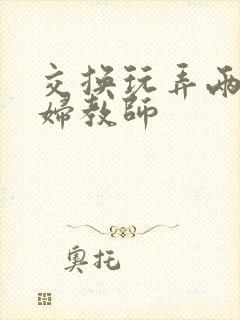 交换玩弄两
婦教師
奧托